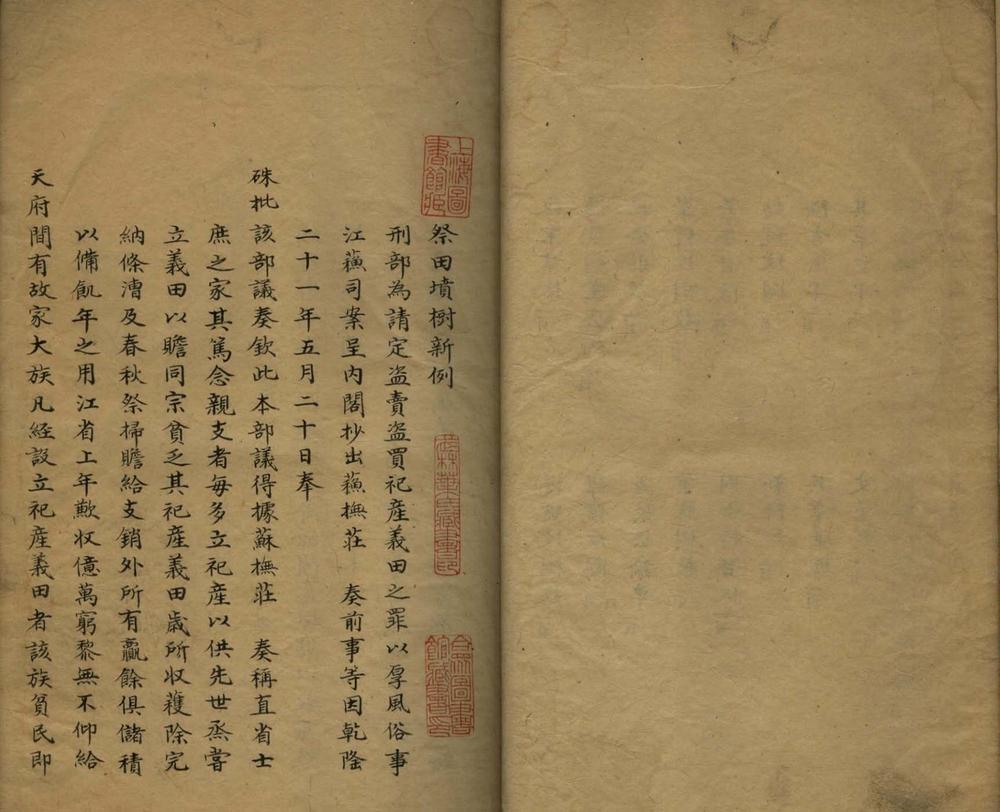 祭田墳樹新例
刑部為請定盜賣盜買祀産義田之罪以厚風俗事
江蘓司案呈内閣抄出蘓撫莊　奏前事等因乾隆
二十一年五月二十日奉
硃批該部議奏欽此本部議得據蘇撫莊　奏稱直省士
庶之家其篤念親支者每多立祀産以供先世烝嘗
立義田以贍同宗貧乏其祀産義田歲所収穫除完
納條漕及春秋祭掃贍給支銷外所有贏餘俱儲積
以備飢年之用江省上年歉収億萬窮黎無不仰給
天府間有故家大族凡經設立祀産義田者該族貧民即
上海圖書館藏
武林葉氏藏書印
合衆圖書館藏書印